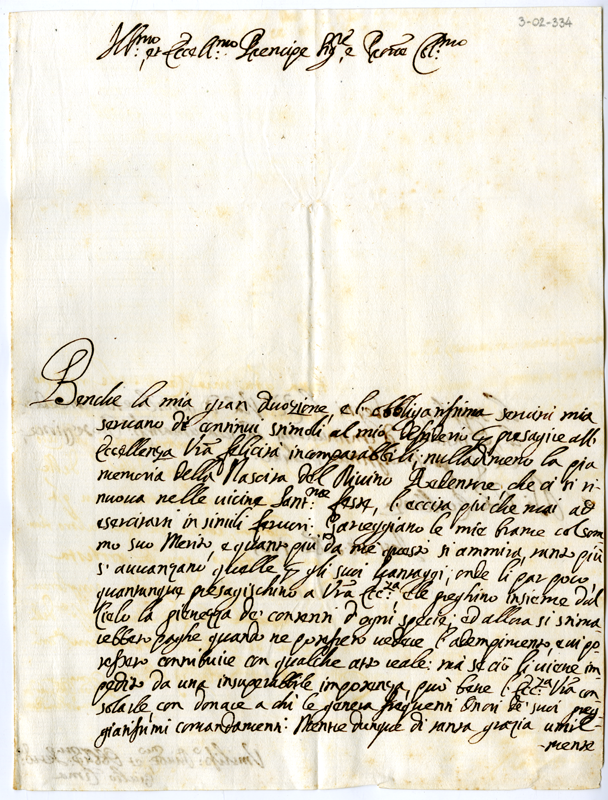 3-02-334
Ill.mo et Eccell.mo Prencipe Sig.re e Pad.ne Col.mo
Benche la mia gran divozione, e l'obbligatissima servitù mia
servano di continui stimoli al mio desiderio per presagire all'
Eccellenza V.ra felicità incomparabili; nulladimeno la pia
memoria della Nascita del Divino Redentore, che ci si ri-
nuova nelle vicine Sant.me feste, l'eccita più che mai ad
esercitarsi in simili fervori. Gareggiano le mie brame col som
mo suo Merito, e quanto più da me questo si ammira, tanto più
s'avvanzano quelle per gli suoi vantaggi; onde li par poco
quantunque presagischino a V.ra Ecc.za e le preghino insieme dal
Cielo la pienezza de' contenti d'ogni specie, ed allora si stima
rebbero paghe quando ne potessero vedere l'adempimento, e vi po
tessero contribuire con qualche atto reale: mà se ciò li viene im
pedito da una insuperabile impotenza, può bene l'Ecc.za V.ra con
solarle con donare a chi le genera frequenti onori de' suoi preg
giatissimi comandamenti. Mentre dunque di tanta grazia umil-
mente